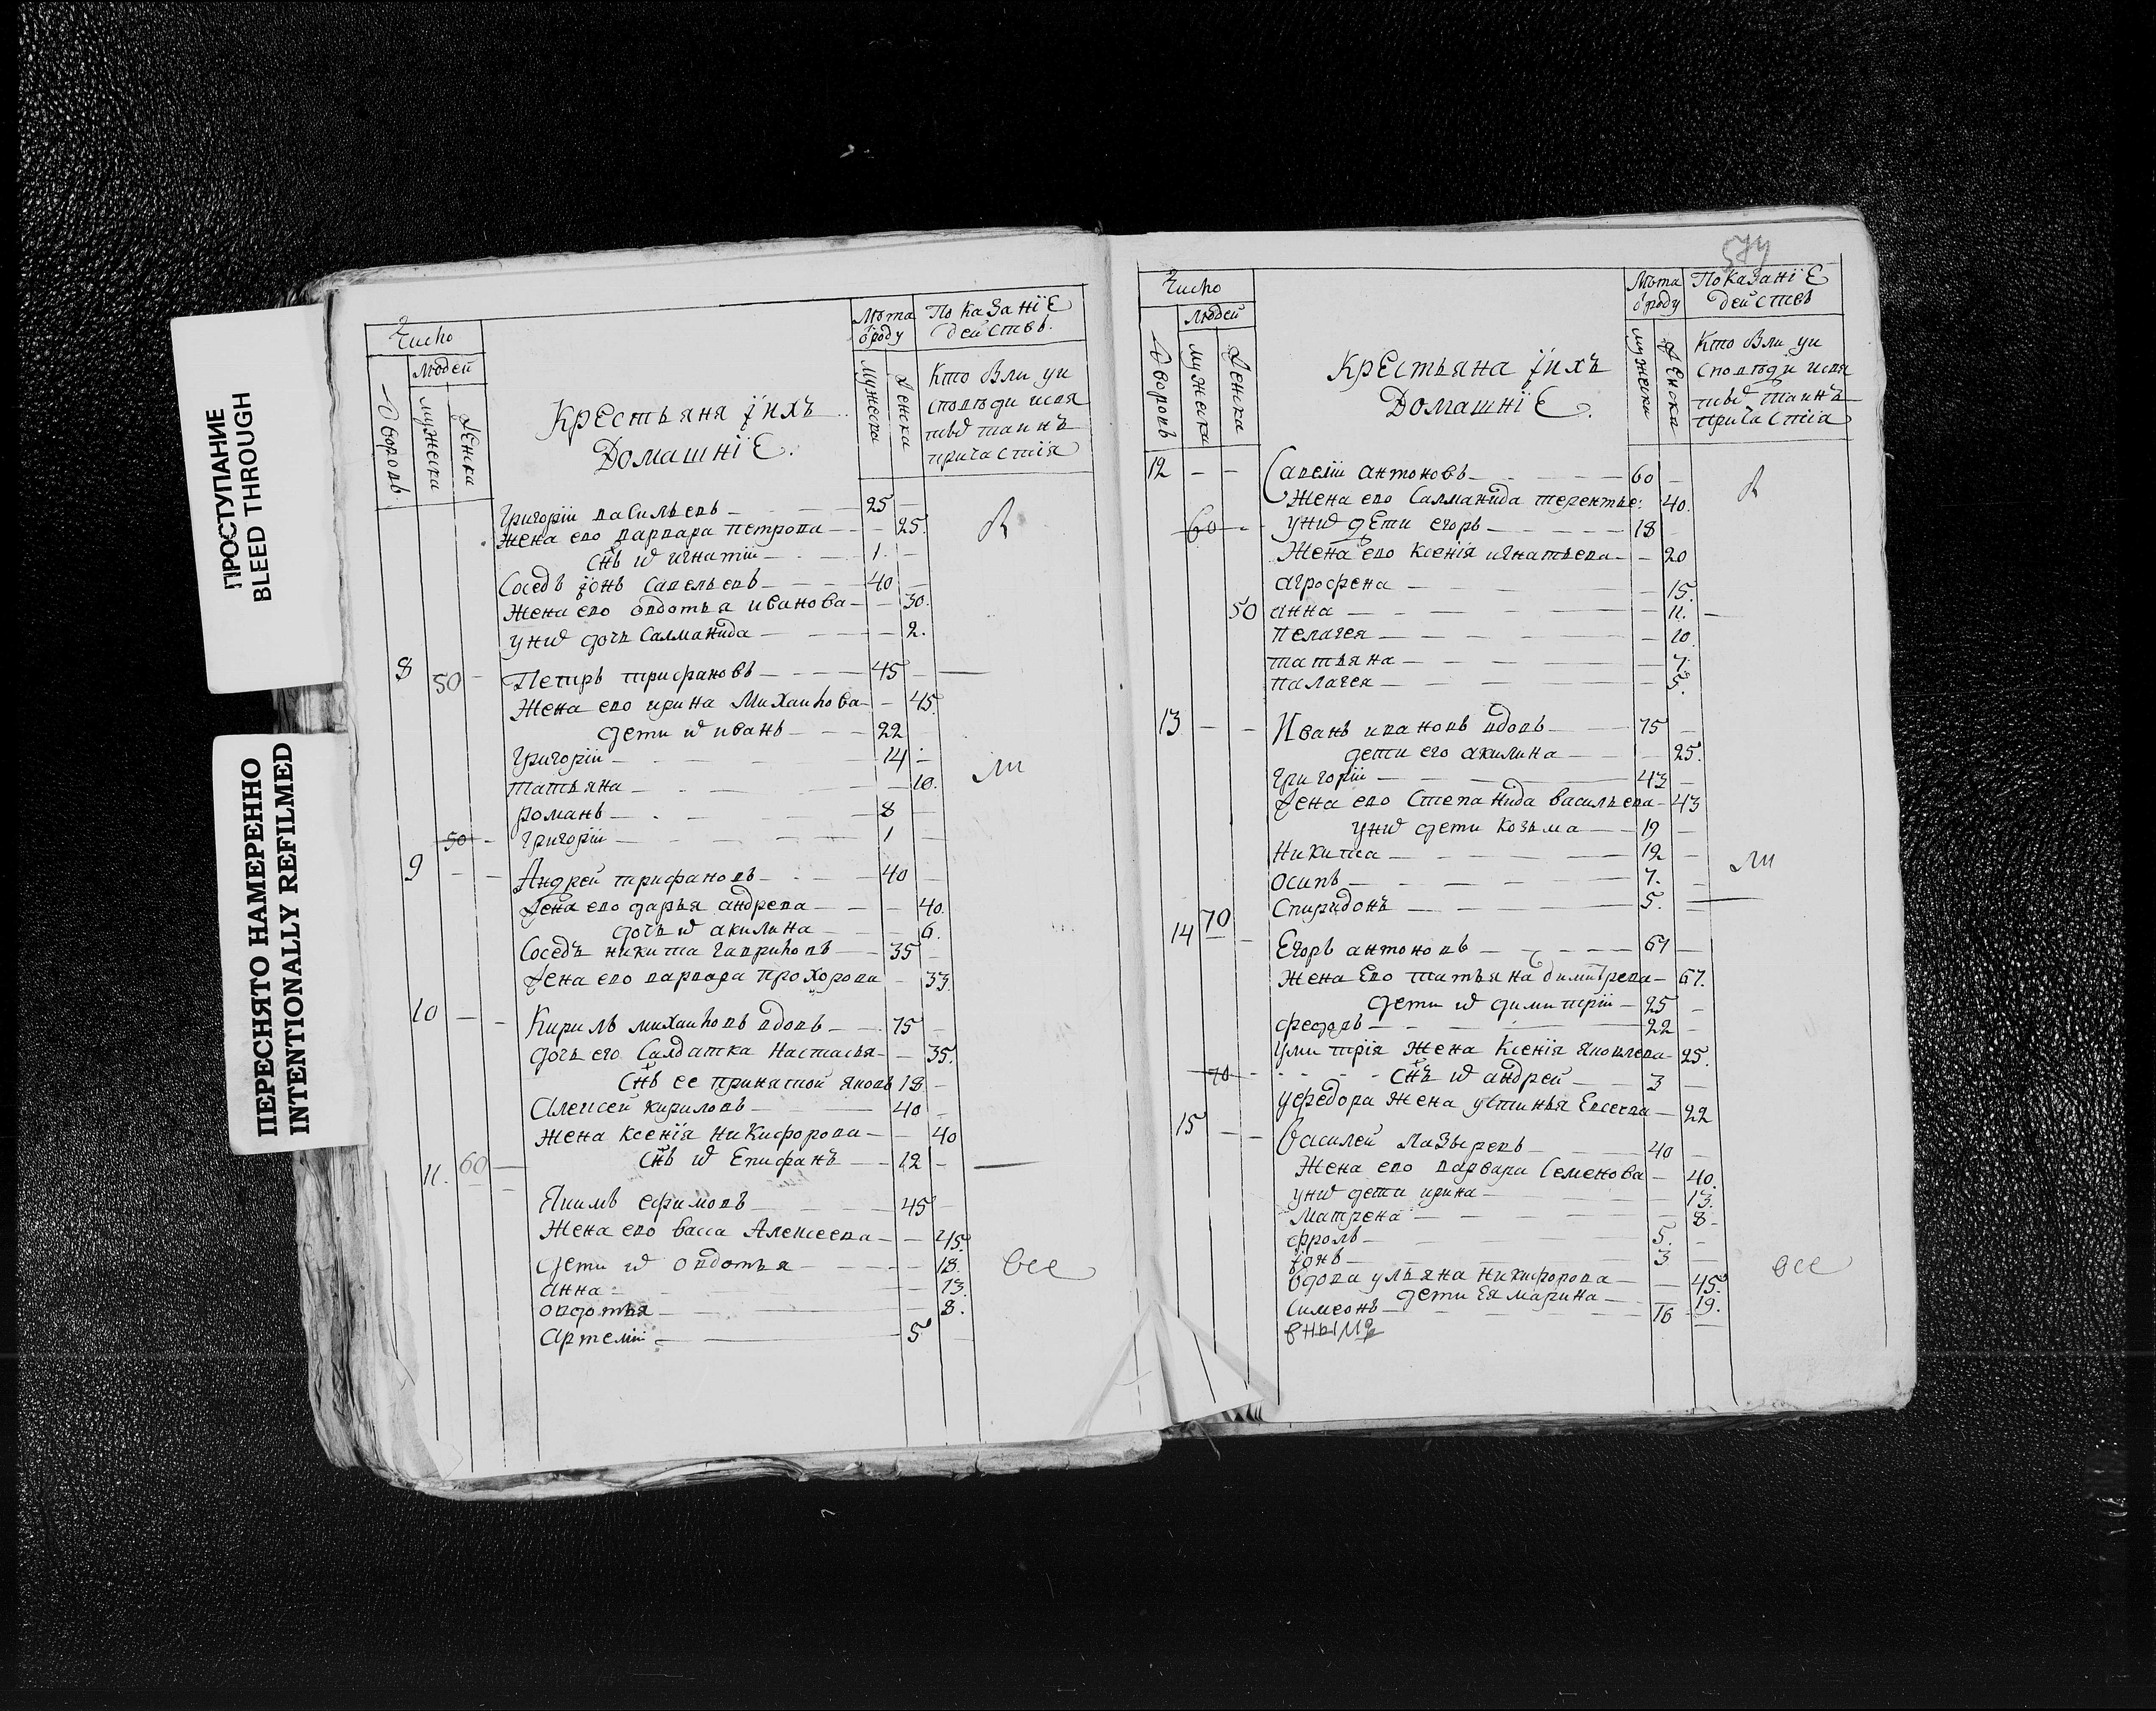 ПРОСТУПАНИЕ
BLEED THROUGH
ПЕРЕСНЯТО НАМЕРЕННО
INTENTIONALLY REFILMED
Число
Людей
Дворовъ
мужеска
женска
Крестьяня їихъ
Домашнїе.
Лѣта
ѿроду
мужеска
женска
Показанїе
действъ.
Кто были у и
сповѣди и свя
тыѡ таинъ
причастїя
Григорїи васильевъ 25
Жена ево варвара петрова 25.
сн҃ъ ѡ игнатїи 1.
Соседъ їѡнъ савельевъ 40
Жена ево овдотья иванова 30.
у ниѡ дочь Салманида 2.
8 50 Петръ трифановъ 45
Жена ево ирина Михаилова 45.
дети ѡ иванъ 22
Григорїи 14
татьяна 10.
романъ 8
50 григорїи 1
9 Андрей трифановъ 40
Жена ево дарья андрева 40.
дочь ѡ акилина 6.
Соседъ никита гавриловъ 35
Жена ево варвара прохорова 33.
10 Кирилъ михаиловъ вдовъ 75
дочь его Салдатка Настасья 35.
сн҃ъ ее принятой яковъ 18
Алексей кириловъ 40
Жена ксенїя никифорова 40
сн҃ъ ѡ Епифанъ 12
11. 60
Якимъ ефимовъ 45
Жена ево васса Алексеева 45.
дети ѡ овдотья 18.
анна 13.
овдотья 8.
Артемїи 5
ли
все
574
Число
Людей
Дворовъ
мужеска
женска
Крестьяна їихъ
Домашнїе.
Лѣта
ѿроду
мужеска
женска
Показанїе
действъ
Кто были у и
сповѣди и свя
тыѡ таинъ
причастїя
12 Савелїи антоновъ 60
Жена ево Салманида терентье: 40.
60 у ниѡ дети егоръ 18
Жена ево ксенїя игнатьева 20
агрофена 15.
50 анна 11.
пелагея 10
татьяна 7.
палагея 5.
13 Иванъ ивановъ вдовъ 75
дети его акилина 25.
григорїи 43
Жена ево Степанида васильева 43
у ниѡ дети козьма 19
никита 12
осипъ 7.
Спиридонъ 5.
14 70
Егоръ антоновъ 67
Жена Ево татьяна димитрева 67.
дети ѡ димитрїи 25
федоръ 22
у митрїя Жена ксенїя яковлева 25.
70 сн҃ъ ѡ андрей 3
у федора жена устинья Евсеева 22
15 Василей лазыревъ 40
Жена ево варвара Семенова 40.
у ниѡ дети ирина 13.
матрена 8
фролъ 5.
їѡнъ 3
вдова ульяна никифорова 45.
дети ея марина 19.
симеонъ 16
ли
все